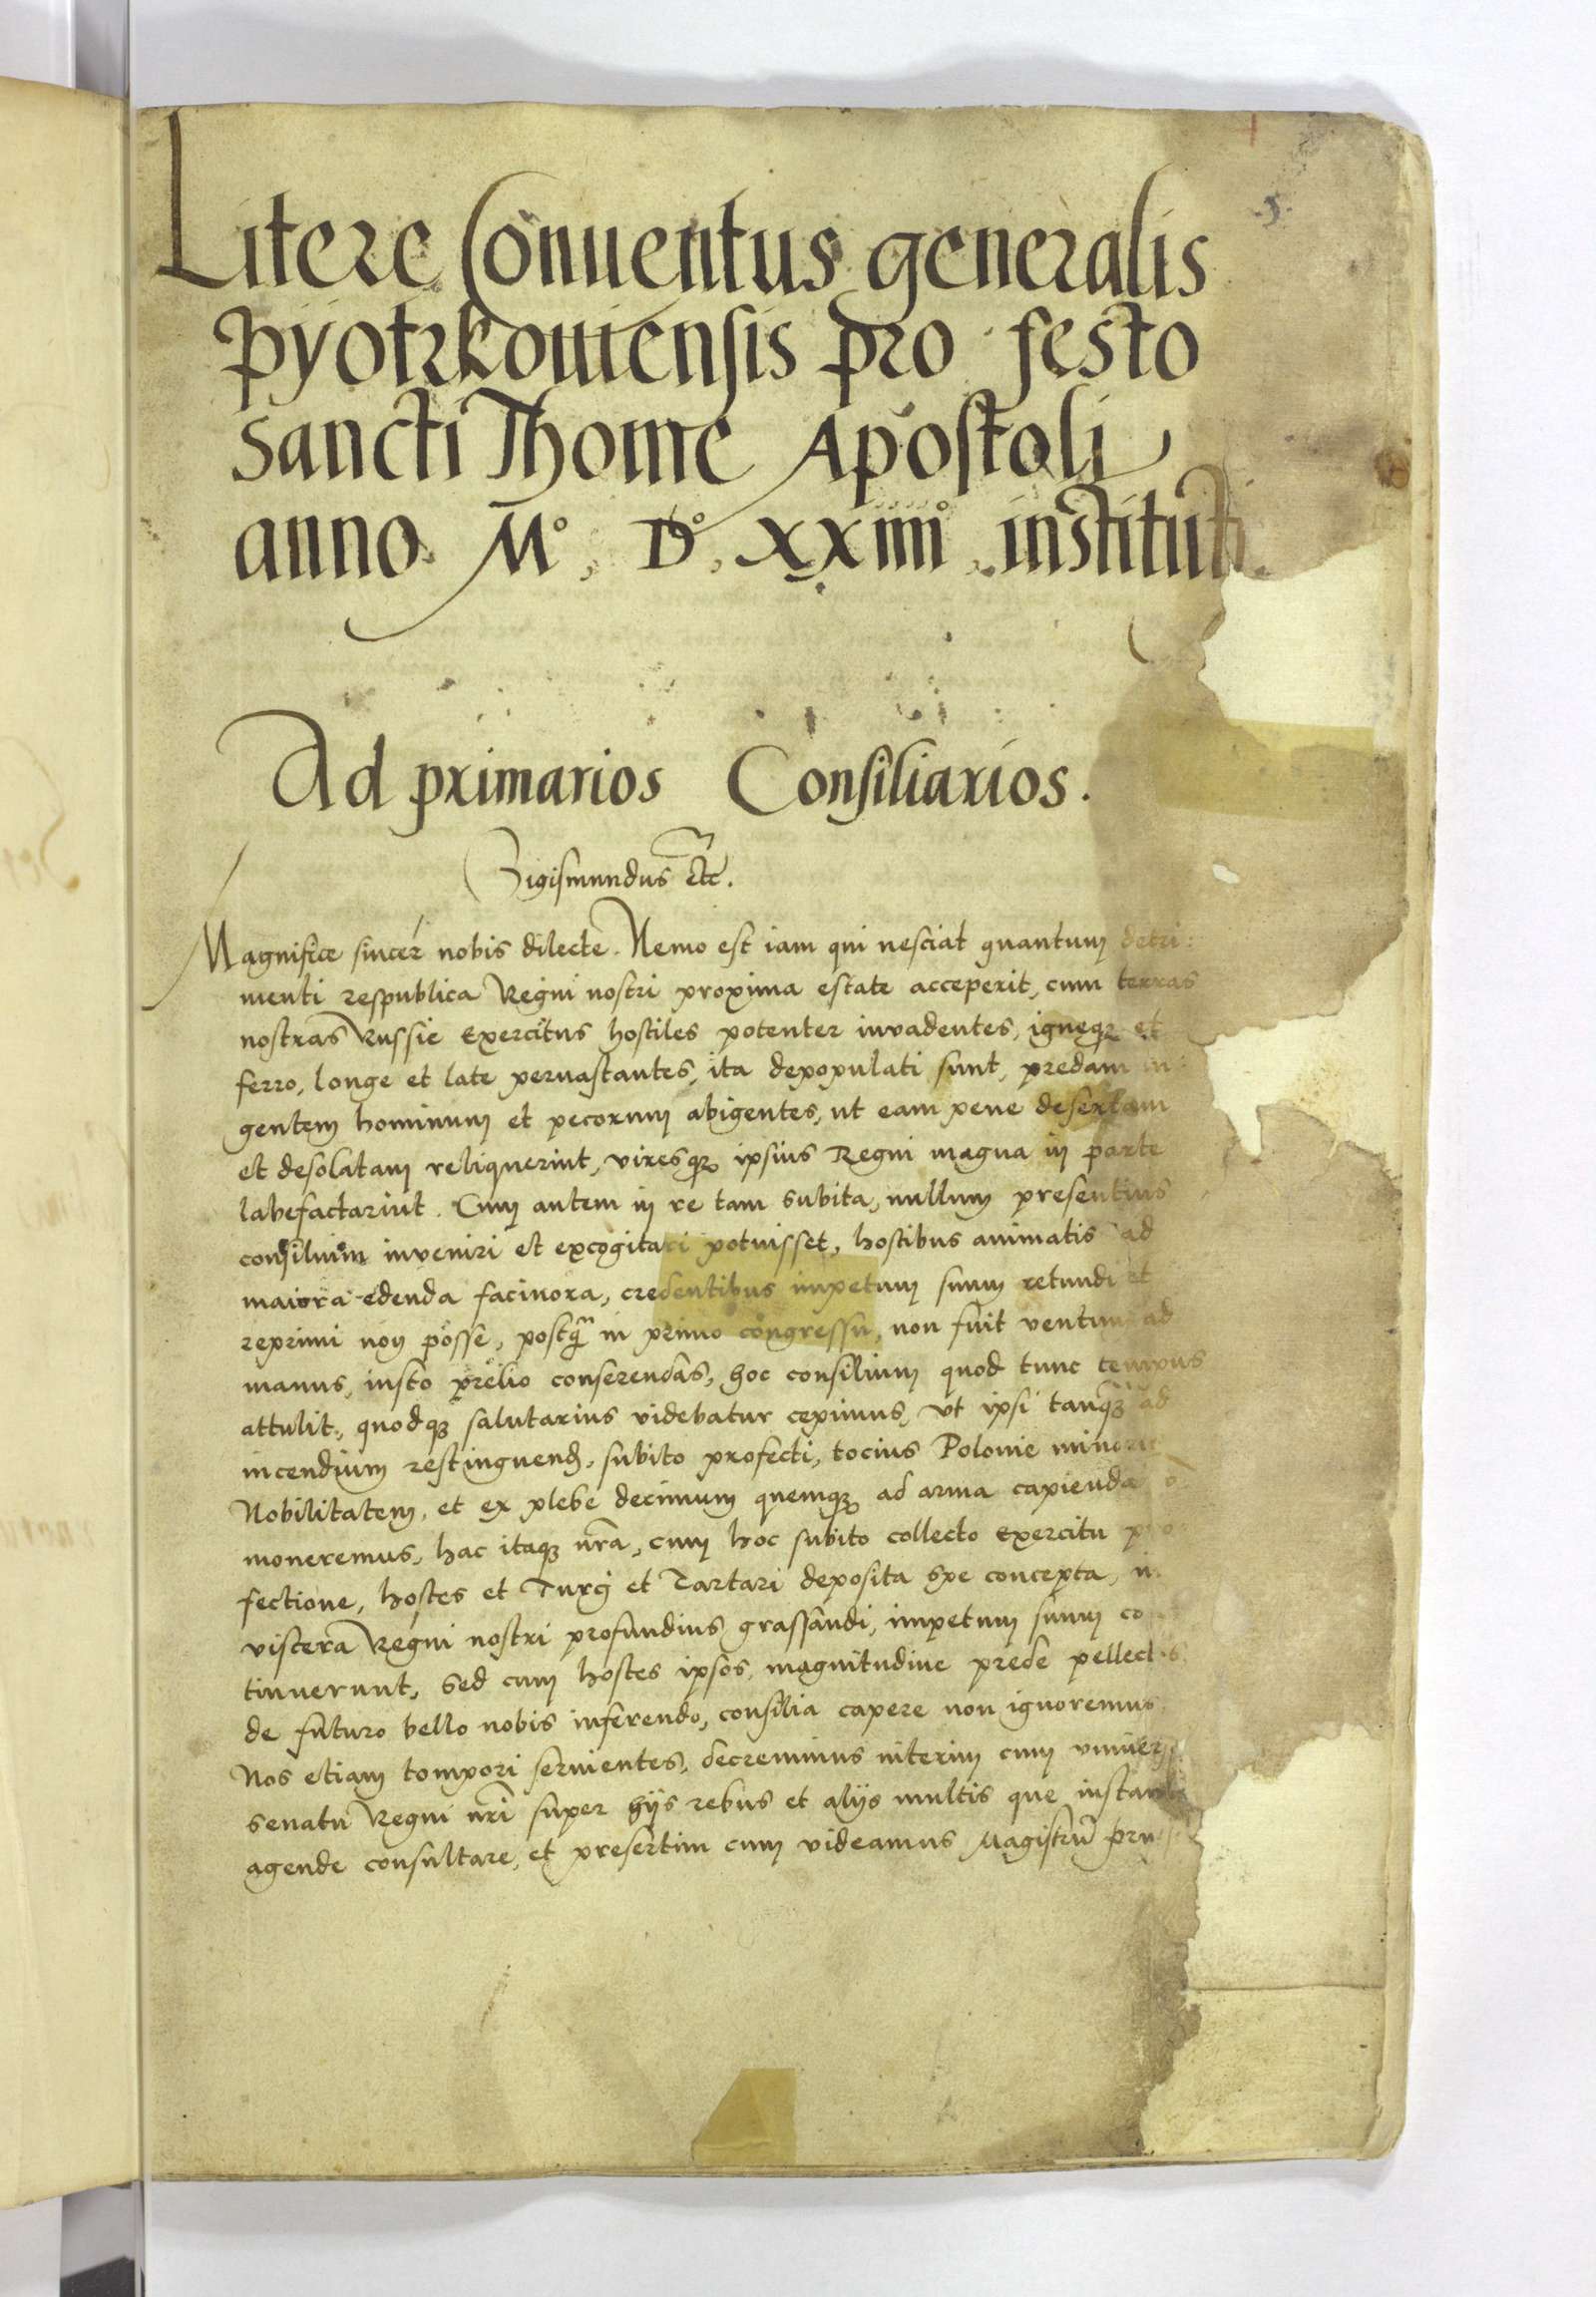 .5.
Litere Conuentus generalis
Pyotrkouiensis pro festo
Sancti Thome Apostoli
anno Mº. Dº. XXIIIIº instituti
Ad primarios Consiliarios.
Sigismundus etc.
Magnifice sincer nobis dilecte. Nemo est iam qui nesciat quantum detri:
menti respublica Regni nostri proxima estate acceperit, cum terras
nostras Russie Exercitus hostiles potenter invadentes, igneqz et
ferro, longe et late pervastantes, ita depopulati sunt, predam in
gentem hominum et pecorum abigentes, ut eam pene desertam
et desolatam reliquerint, viresqz ipsius Regni magna in parte
labefactarint. Cum autem in re tam subita, nullum presentius
consilium inveniri et excogitari potuisset, hostibus animatis ad
maiora edenda facinora, credentibus impetum suum retundi et
reprimi non posse, postq̃ in primo congressu, non fuit ventum ad
manus, iusto prelio conserendas, hoc consilium quod tunc tempus
attulit, quodqz salutarius videbatur cepimus, ut ipsi tanq̃ ad
incendium restinguend, subito profecti, tocius Polonie minoris
Nobilitatem, et ex plebe decimum quemqz ad arma capienda
moneremus, hac itaqz nr̃a, cum hoc subito collecto Exercitu pro
fectione, hostes et Turci et Tartari deposita spe concepta, in
viscera Regni nostri profundius grassandi, impetum suum con
tinuerunt, Sed cum hostes ipsos, magnitudine prede pellectos
de futuro bello nobis inferendo, consilia capere non ignoremus,
Nos etiam tempori servientes, decrevimus interim cum universo
senatu Regni nr̃i super hijs rebus et alijs multis que instant
agende consultare, et presertim cum videamus Magistrũ